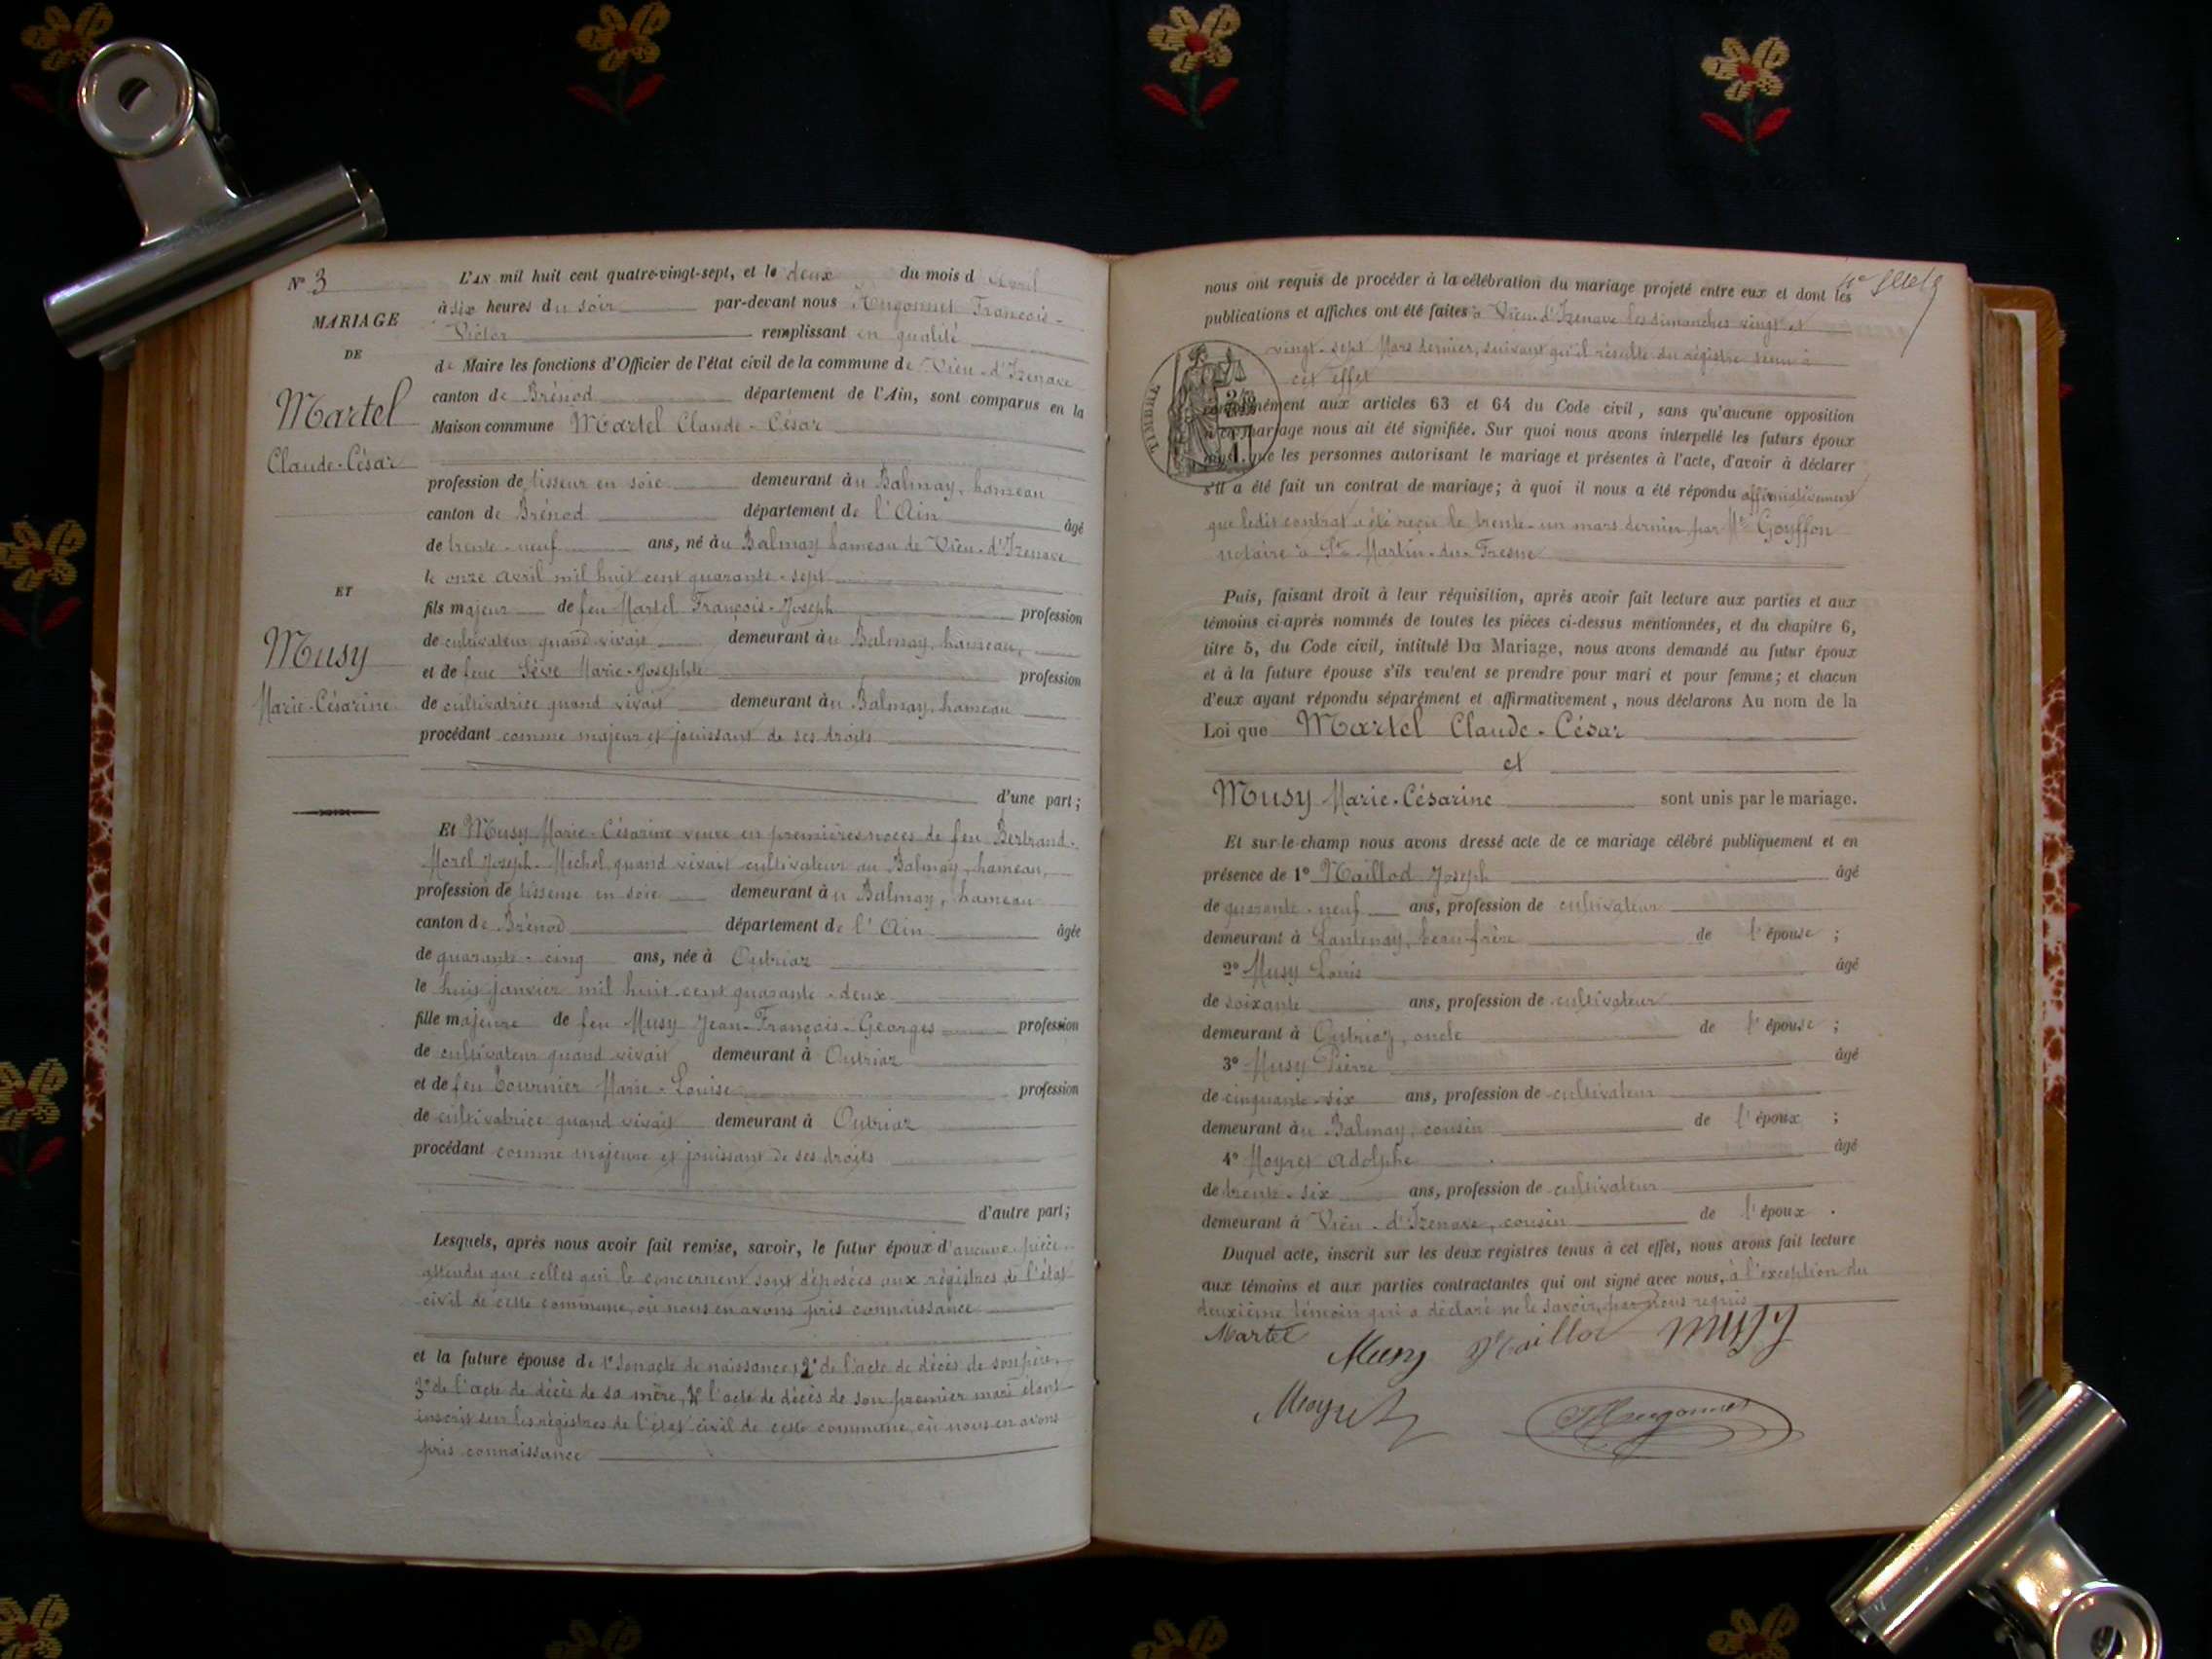 N° 3
MARIAGE
DE
Martel
Claude-César
ET
Musy
Marie-Césarine
L'AN mil huit cent quatre-vingt-sept, et le deux du mois d'Avril
à six heures du soir par-devant nous Hugonnet François-
Victor remplissant en qualité
de Maire les fonctions d'Officier de l'état civil de la commune de Vieu-d'Izenave
canton de Brénod département de l'Ain, sont comparus en la
Maison commune Martel Claude-César
profession de tisseur en soie demeurant au Balmay, hameau
canton de Brénod département de l'Ain âgé
de trente-neuf ans, né au Balmay hameau de Vieu-d'Izenave
le onze avril mil huit cent quarante-sept
fils majeur de feu Martel François-Joseph profession
de cultivateur quand vivait demeurant au Balmay, hameau,
et de feue Sève Marie-Josephte profession
de cultivatrice quand vivait demeurant au Balmay, hameau
procédant comme majeur et jouissant de ses droits
d'une part;
Et Musy Marie-Césarine veuve en premières noces de feu Bertrand-
Morel Joseph-Michel quand vivait cultivateur au Balmay, hameau,
profession de tisseuse en soie demeurant au Balmay, hameau
canton de Brénod département de l'Ain âgée
de quarante-cinq ans, née à Outriaz
le huit janvier mil huit cent quarante-deux
fille majeure de feu Musy Jean-François-Georges profession
de cultivateur quand vivait demeurant à Outriaz
et de feu Tournier Marie-Louise profession
de cultivatrice quand vivait demeurant à Outriaz
procédant comme majeure et jouissant de ses droits
d'autre part;
Lesquels, après nous avoir fait remise, savoir, le futur époux d'aucune pièce
attendu que celles qui le concernent sont déposées aux régistres de l'état
civil de cette commune, où nous en avons pris connaissance
et la future épouse de 1° son acte de naissance, 2° de l'acte de décès de son père,
3° de l'acte de décès de sa mère, 4° l'acte de décès de son premier mari étant
inscrit sur les régistres de l'état civil de cette commune, où nous en avons
pris connaissance
nous ont requis de procéder à la célébration du mariage projeté entre eux et dont les
publications et affiches ont été faites à Vieu-d'Izenave les dimanches vingt et
vingt-sept Mars dernier, suivant qu'il résulte du régistre tenu à
cet effet
TIMBRE
conformément aux articles 63 et 64 du Code civil, sans qu'aucune opposition
mariage nous ait été signifiée. Sur quoi nous avons interpellé les futurs époux
que les personnes autorisant le mariage et présentes à l'acte, d'avoir à déclarer
s'il a été fait un contrat de mariage; à quoi il nous a été répondu affirmativement
que ledit contrat a été reçu le trente-un mars dernier par Me Gouffon
notaire à St-Martin-du-Fresne
Puis, faisant droit à leur réquisition, après avoir fait lecture aux parties et aux
témoins ci-après nommés de toutes les pièces ci-dessus mentionnées, et du chapitre 6,
titre 5, du Code civil, intitulé Du Mariage, nous avons demandé au futur époux
et à la future épouse s'ils veulent se prendre pour mari et pour femme; et chacun
d'eux ayant répondu séparément et affirmativement, nous déclarons Au nom de la
Loi que Martel Claude-César
et
Musy Marie-Césarine sont unis par le mariage.
Et sur-le-champ nous avons dressé acte de ce mariage célébré publiquement et en
présence de 1° Maillod Joseph âgé
de quarante-neuf ans, profession de cultivateur
demeurant à Lantenay, beau-frère de l'épouse ;
2° Musy Louis âgé
de soixante ans, profession de cultivateur
demeurant à Outriaz, oncle de l'épouse ;
3° Musy Pierre âgé
de cinquante-six ans, profession de cultivateur
demeurant au Balmay, cousin de l'époux ;
4° Moyret Adolphe âgé
de trente-six ans, profession de cultivateur
demeurant à Vieu-d'Izenave, cousin de l'époux .
Duquel acte, inscrit sur les deux registres tenus à cet effet, nous avons fait lecture
aux témoins et aux parties contractantes qui ont signé avec nous, à l'exception du
deuxième témoin qui a déclaré ne le savoir, par nous requis
Martel Musy Maillod Musy
Moyret Hugonnet